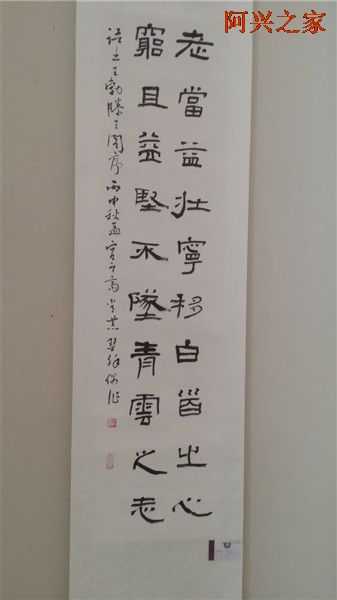 阿兴之家
老當益壯寧移白首之心
窮且益堅不墜青雲之志
王勃滕王閣序丙申秋